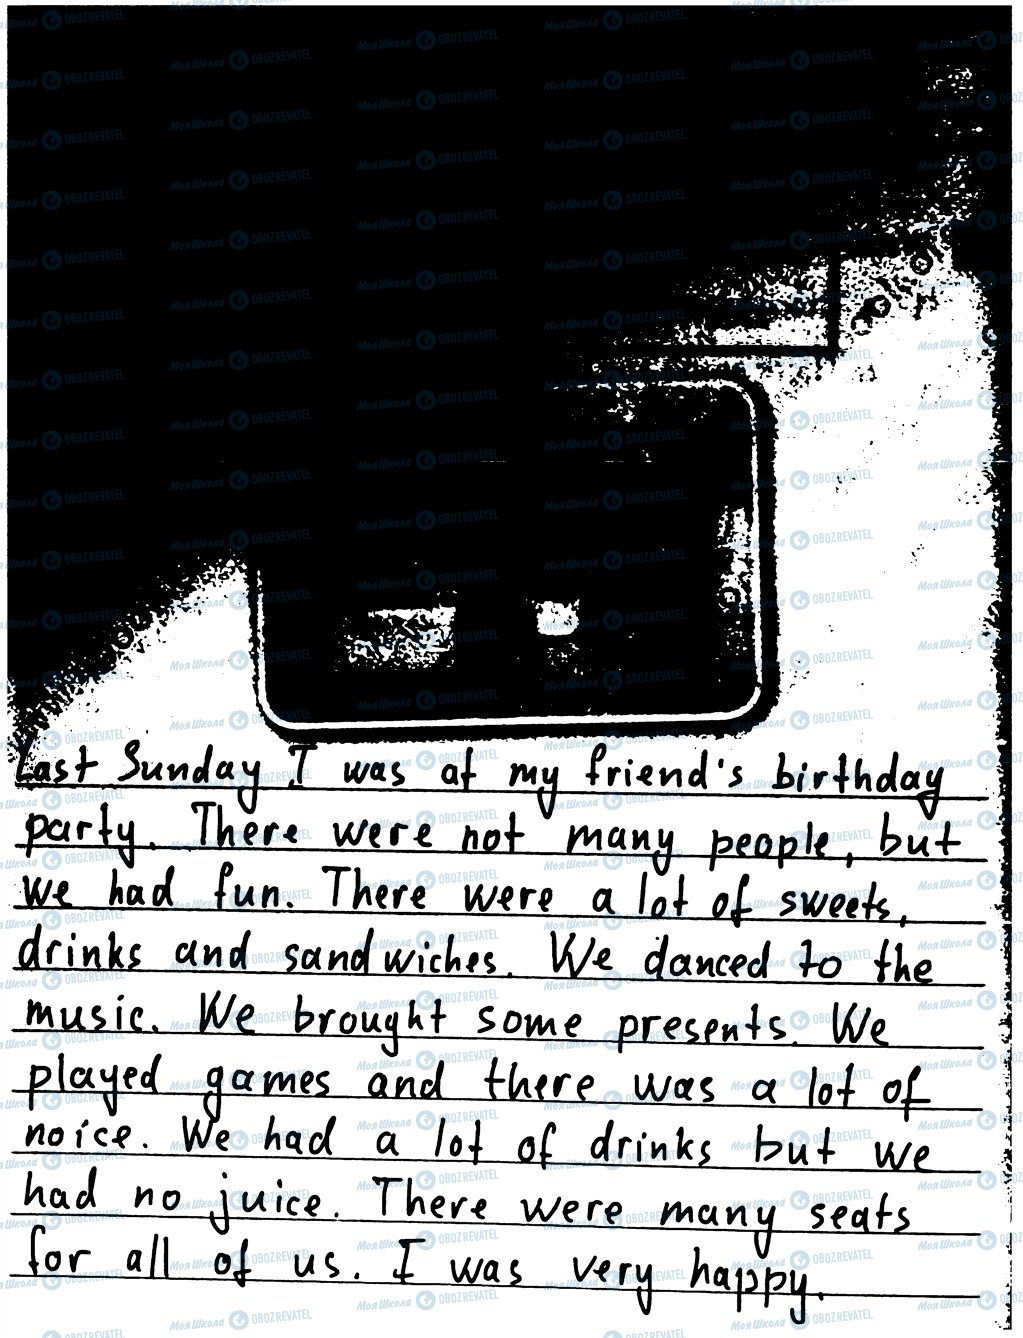 Last Sunday I was at my friend's birthday
party. There were not many people, but
we had fun. There were a lot of sweets,
drinks and sandwiches. We danced to the
music. We brought some presents. We
played games and there was a lot of
noice. We had a lot of drinks but we
had no juice. There were many seats
for all of us. I was very happy.
Моя Школа OBOZREVATEL